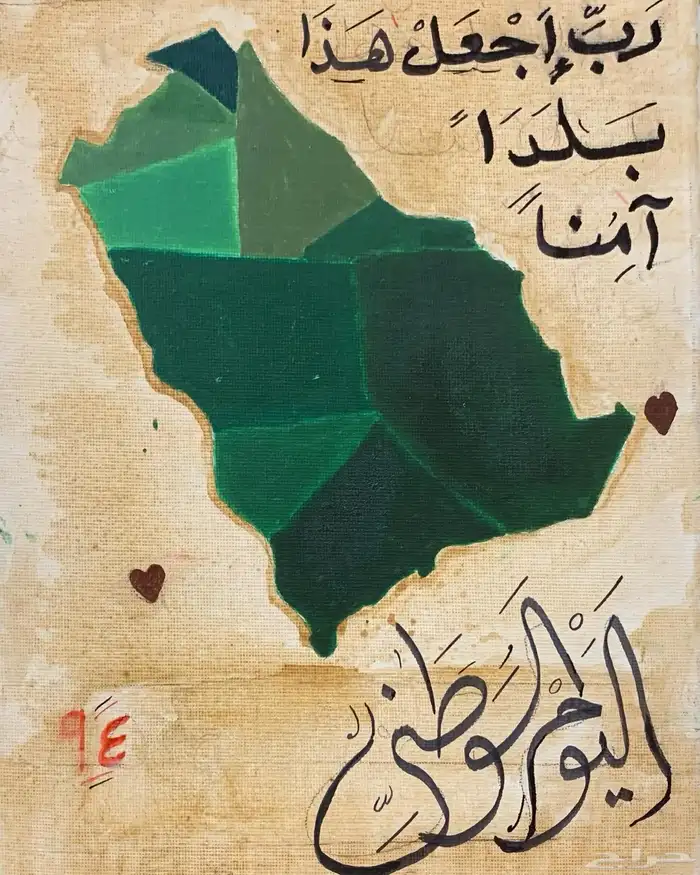 رَبِّ إَجْعَلْ هَذَا
بَلَدَاً
آمِناً
اليَوْم الوَطني
٩٤
حراج